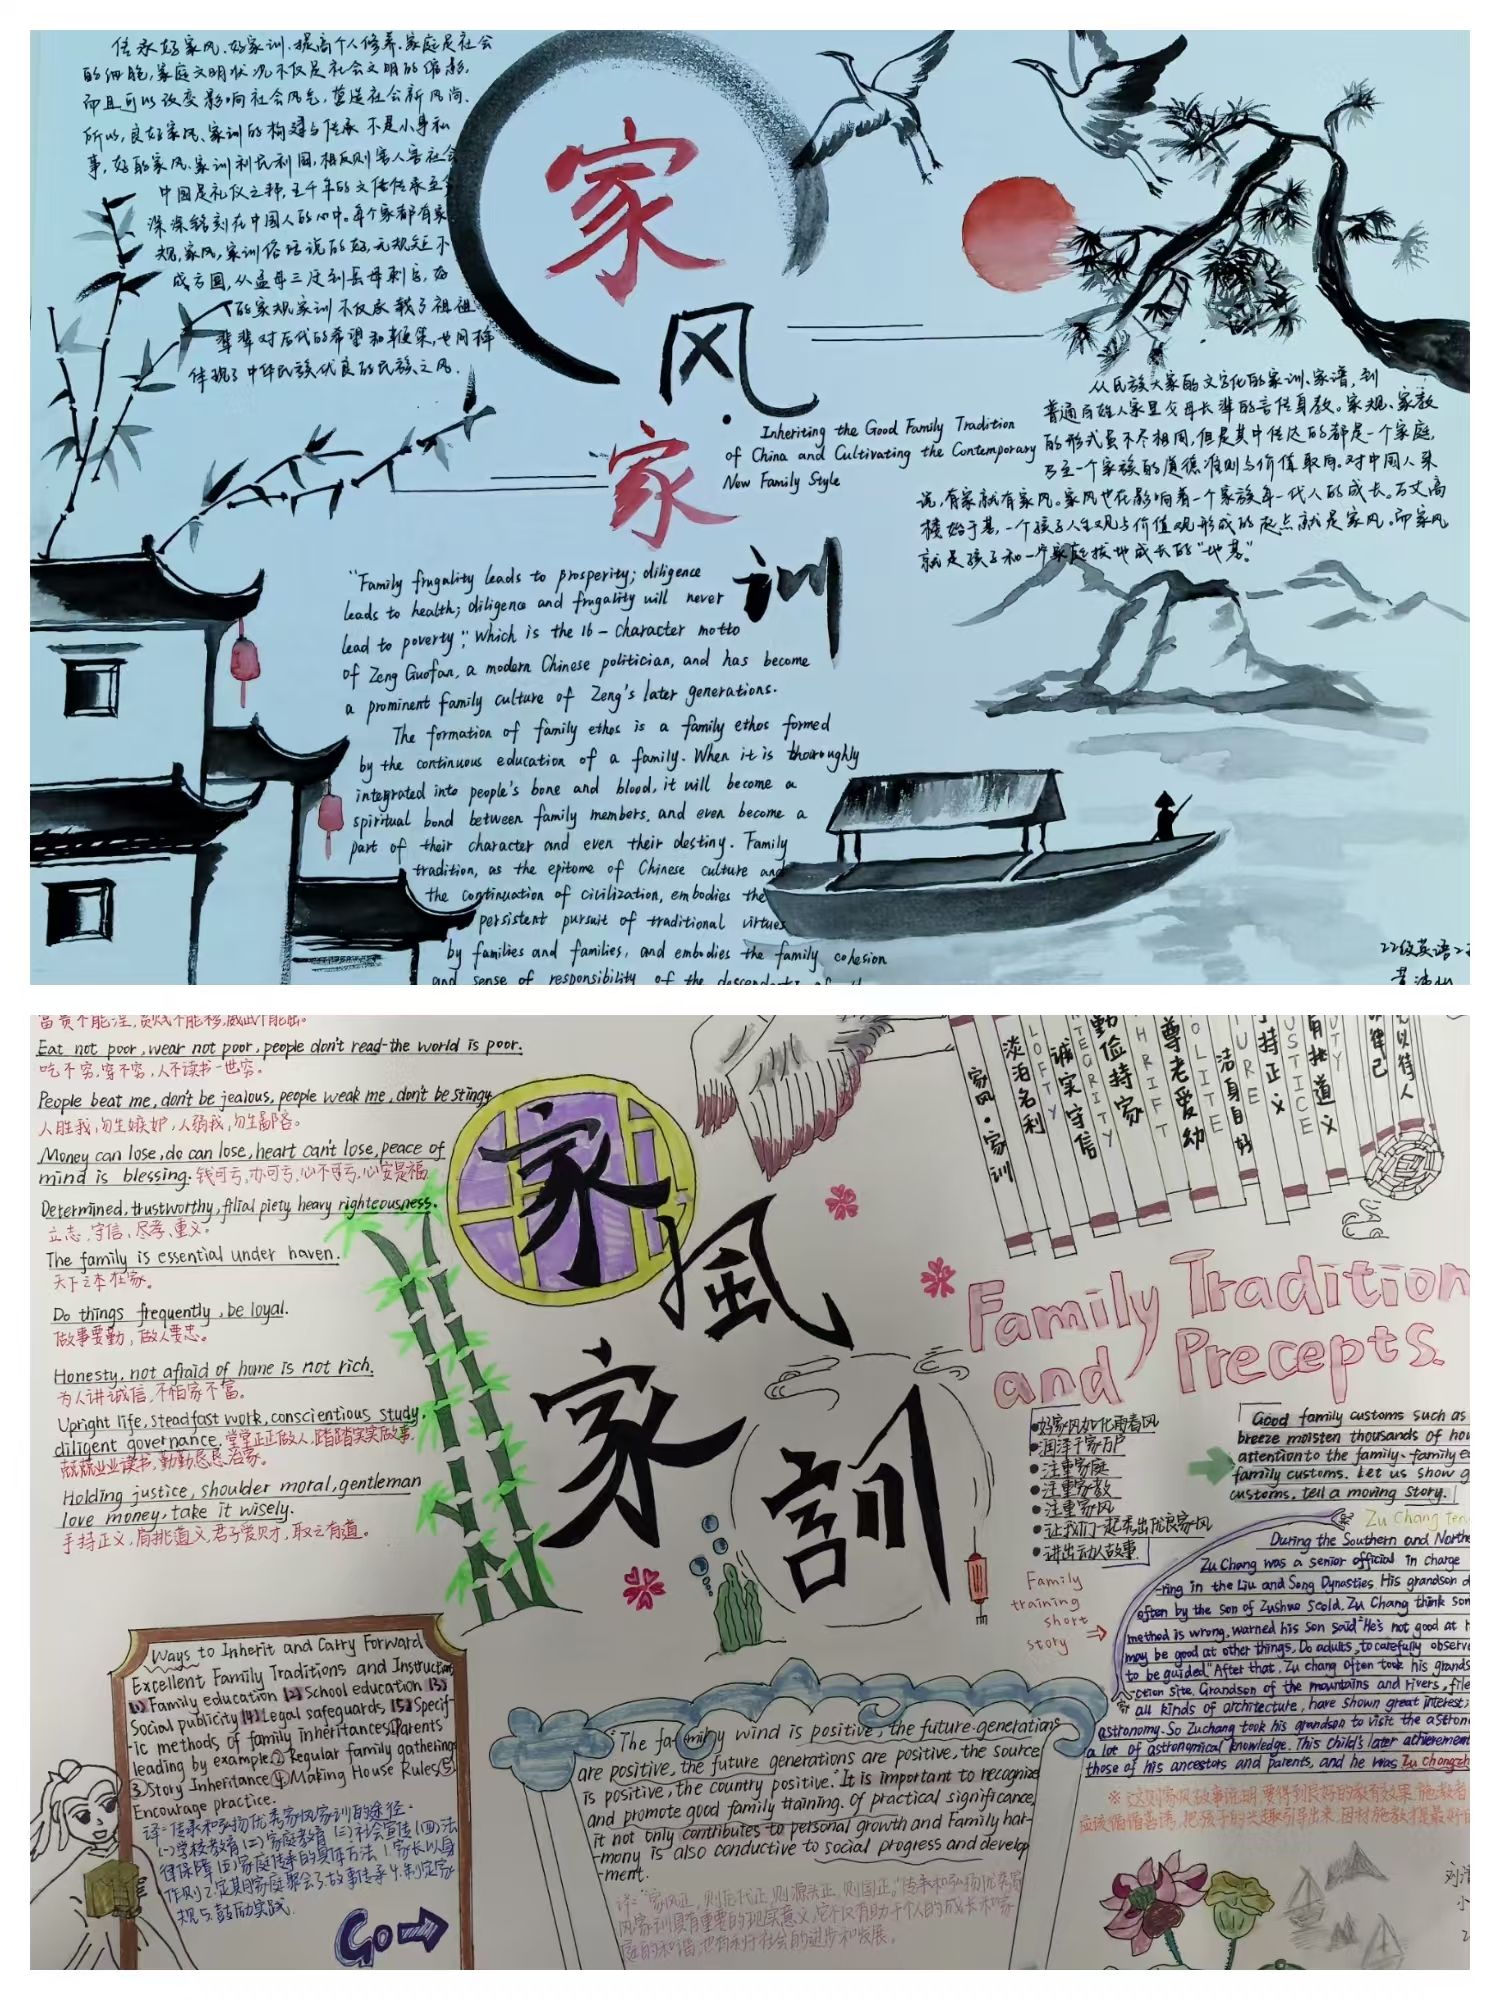 传承好家风、好家训、提高个人修养、家庭是社会
的细胞,家庭文明状况不仅是社会文明的缩影,
而且可以改变影响社会风气,营造社会新风尚、
所以,良好家风、家训的构建与传承不是小事私
事,好的家风、家训利民利国,相反则害人害社会
中国是礼仪之邦,五千年的文化传承至今
深深铭刻在中国人的心中。每个家都有家
规,家风,家训俗话说的好,无规矩不
成方圆,从孟母三迁到岳母刺字,好
的家规家训不仅承载了祖祖
辈辈对后代的希望和鞭策,也同样
体现了中华民族优良的民族之风.
家
风
·
家
训
Inheriting the Good Family Tradition
of China and Cultivating the Contemporary
New Family Style
从民族大家的文字化的家训、家谱,到
普通百姓人家里父母长辈的言传身教。家规、家教
的形式虽不尽相同,但是其中传达的都是一个家庭,
乃至一个家族的道德准则与价值取向。对中国人来
说,有家就有家风。家风也在影响着一个家族每一代人的成长。万丈高
楼始于基,一个孩子人生观与价值观形成的起点就是家风。而家风
就是孩子和一个家庭拔地成长的"地基"
"Family frugality leads to prosperity; diligence
leads to health; diligence and frugality will never
lead to poverty", which is the 16-character motto
of Zeng Guofan, a modern Chinese politician, and has become
a prominent family culture of Zeng's later generations.
The formation of family ethos is a family ethos formed
by the continuous education of a family. When it is thoroughly
integrated into people's bone and blood, it will become a
spiritual bond between family members, and even become a
part of their character and even their destiny. Family
tradition, as the epitome of Chinese culture and
the continuation of civilization, embodies the
persistent pursuit of traditional virtues
by families and families, and embodies the family cohesion
and sense of responsibility of the descendants of
22级英语2
富贵不能淫,贫贱不能移,威武不能屈。
Eat not poor, wear not poor, people don't read-the world is poor.
吃不穷,穿不穷,人不读书一世穷。
People beat me, don't be jealous, people weak me, don't be stingy
人胜我,勿生嫉妒,人弱我,勿生鄙吝。
Money can lose, do can lose, heart can't lose, peace of
mind is blessing. 钱可亏,办可亏,心不可亏,心安是福
Determined, trustworthy, filial piety, heavy righteousness.
立志,守信、尽孝、重义。
The family is essential under haven.
天下之本在家。
Do things frequently, be loyal.
做事要勤,做人要忠。
Honesty, not afraid of home is not rich.
为人讲诚信,不怕家不富。
Upright life, steadfast work, conscientious study,
diligent governance. 堂堂正正做人,踏踏实实做事,
兢兢业业读书,勤勤恳恳治家。
Holding justice, shoulder moral, gentleman
love money, take it wisely.
手持正义,肩挑道义,君子爱财,取之有道。
家
風
家
訓
家风·家训
淡泊名利
LOFTY
诚实守信
INTEGRITY
勤俭持家
THRIFT
尊老爱幼
POLITE
洁身自好
PURE
手持正义
JUSTICE
肩挑道义
DUTY
律己
以待人
Family Tradition
and Precepts.
好家风如化雨春风
润泽千家万户
注重家庭
注重家教
注重家风
让我们一起秀出优良家风
讲出动人故事
Good family customs such as
breeze moisten thousands of hou
attention to the family-family e
family customs. Let us show g
customs, tell a moving story.
Family
training
short
story
Zu Chang
During the Southern and Northe
Zu Chang was a senior official in charge
-ring in the Liu and Song Dynasties His grandson
often by the son of Zushuo scold, Zu Chang think son
method is wrong, warned his son said "He's not good at
may be good at other things. Do adults, to carefully observe
to be guided" After that, Zu chang often took his grands
-ction site, Grandson of the mountains and rivers,
all kinds of architecture, have shown great interest;
astronomy. So Zuchang took his grandson to visit the astrono
a lot of astronomical knowledge. This child's later achievement
those of his ancestors and parents, and he was Zu chongzh
※ 这则家风故事说明,要得到良好的教育效果,施教者
应该循循善诱,把孩子的兴趣引导出来,因材施教才是最好的
Ways to Inherit and Carry Forward
Excellent Family Traditions and Instruction
(1) Family education (2) School education (3)
Social publicity (4) Legal safeguards (5) Specif-
-ic methods of family inheritances ① Parents'
leading by example ② Regular family gathering
③ Story Inheritance ④ Making House Rules ⑤
Encourage practice.
译:传承和弘扬优秀家风家训的途径.
(一)学校教育 (二)家庭教育 (三)社会宣传 (四)法
律保障 (五)家庭传承的具体方法 1.家长以身
作则 2.定期家庭聚会 3.故事传承 4.制定家
规 5.鼓励实践.
Go
"The family wind is positive, the future-generations
are positive, the future generations are positive, the source
is positive, the country positive." It is important to recognize
and promote good family training. Of practical significance,
it not only contributes to personal growth and Family har-
-mony is also conductive to social progress and develop
-ment.
译:"家风正,则后代正,则源头正,则国正。"传承和弘扬优秀家
风家训具有重要的现实意义,它不仅有助于个人的成长和家
庭的和谐,也有利于社会的进步和发展。